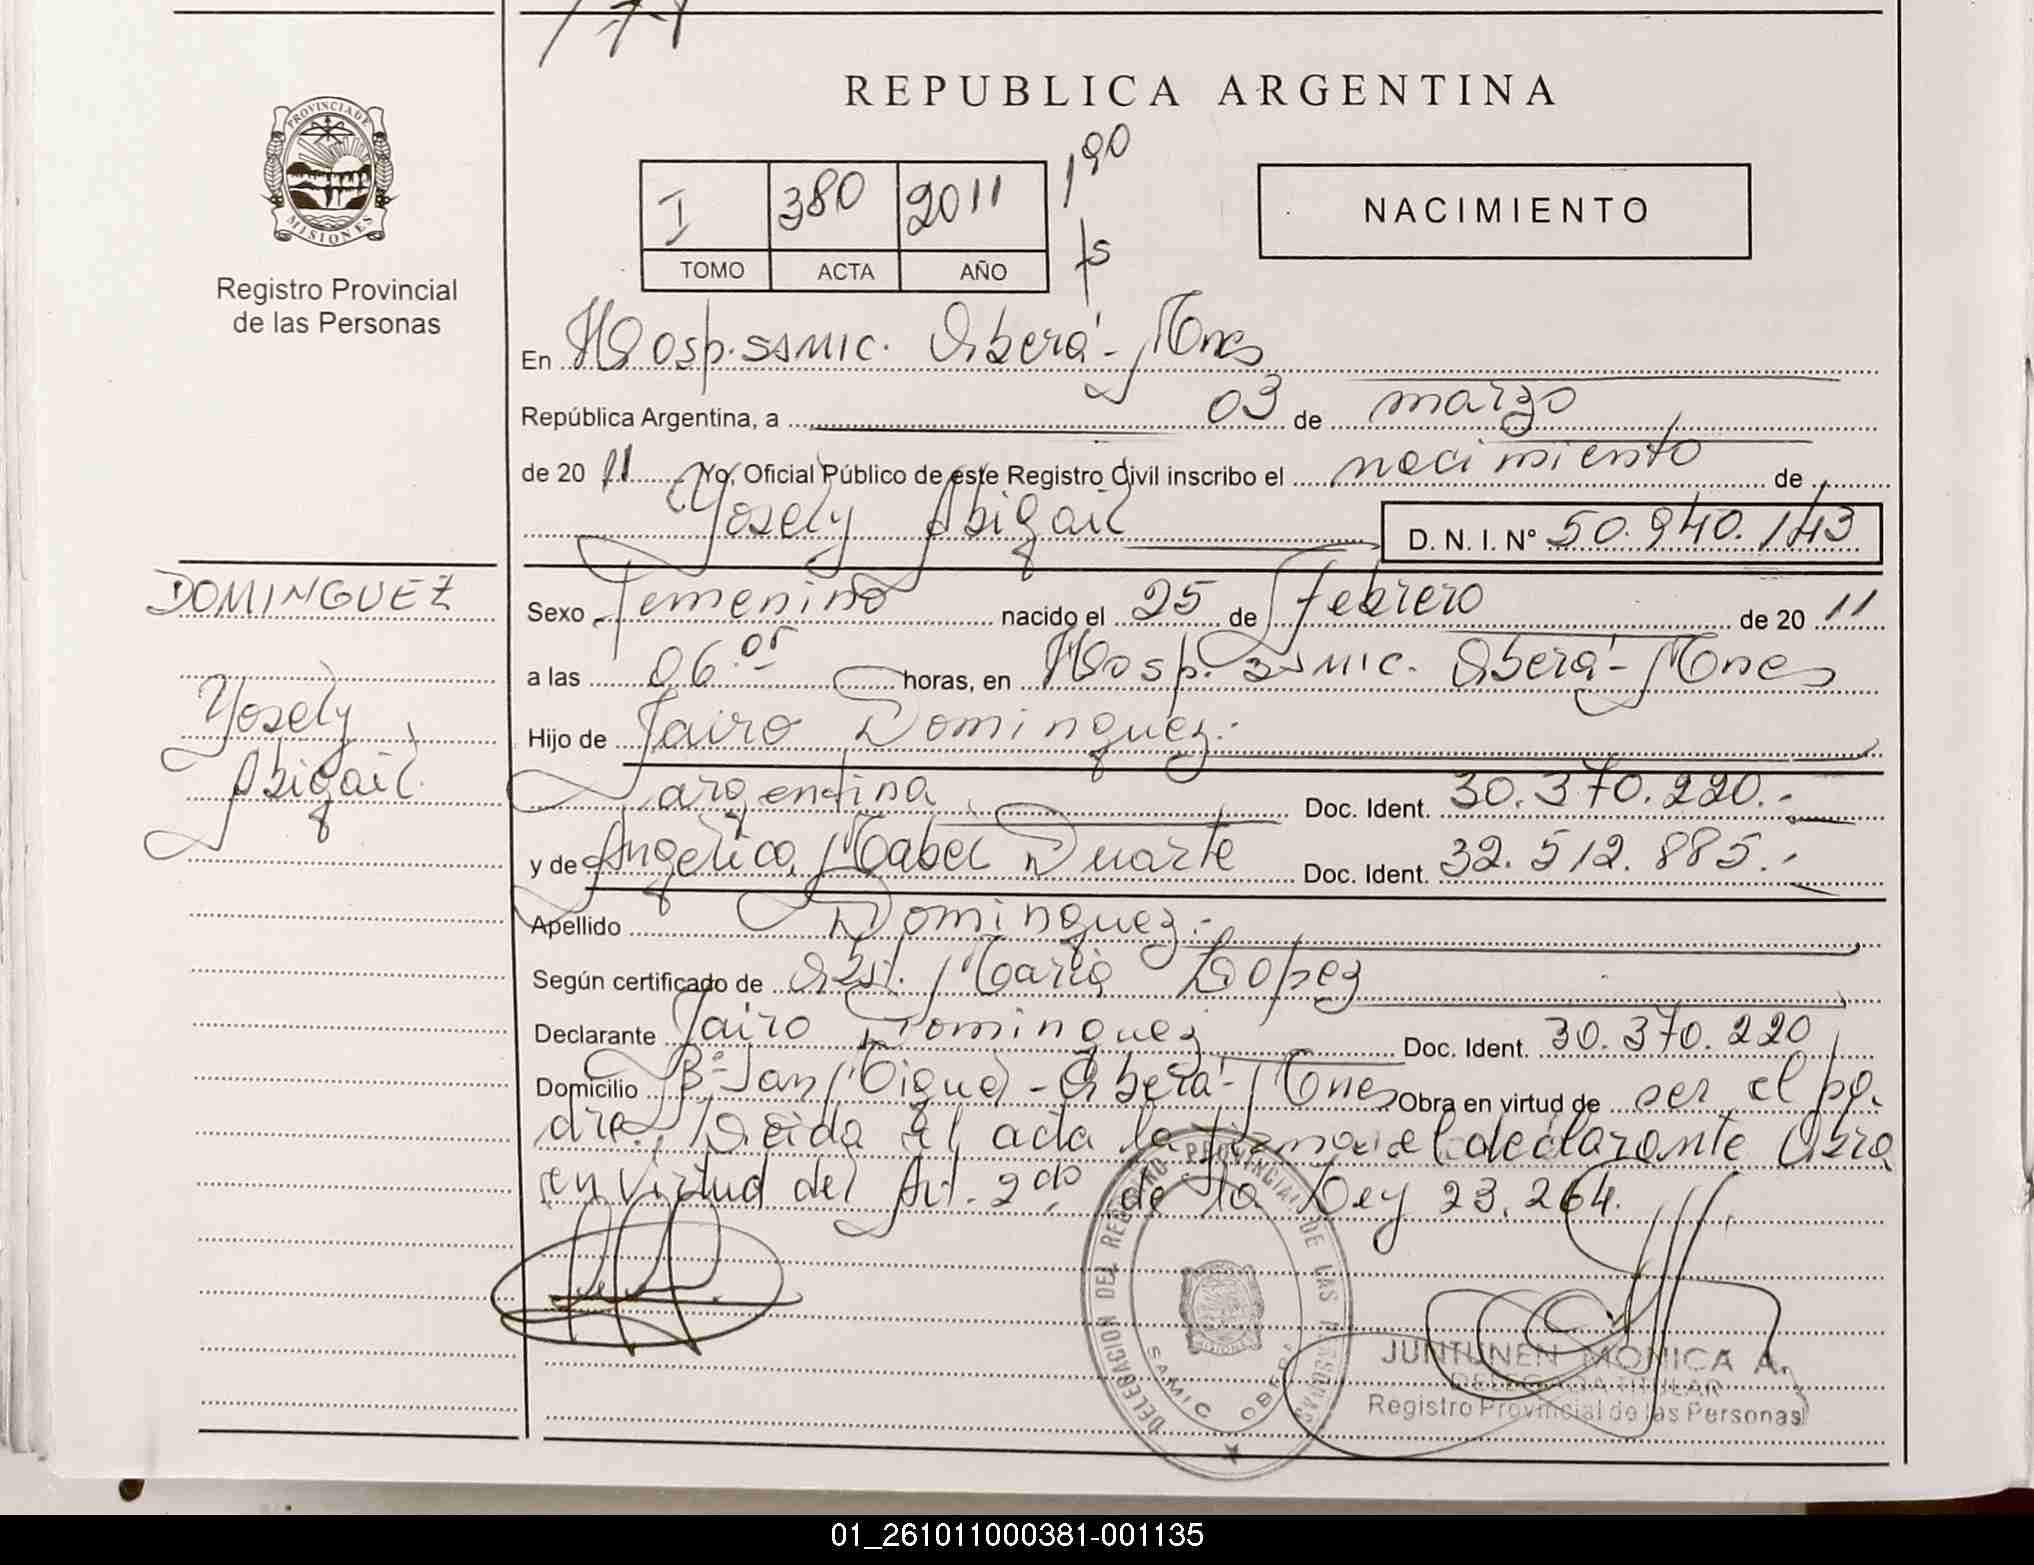 REPUBLICA ARGENTINA
PROVINCIA DE
MISIONES
Registro Provincial
de las Personas
I 380 2011 190
TOMO ACTA AÑO fs
NACIMIENTO
En Hosp. SAMIC. Oberá - Mnes
República Argentina, a 03 de marzo
de 20 11 Yo, Oficial Público de este Registro Civil inscribo el nacimiento de
Yosely Abigail D. N. I. N° 50.940.143
DOMINGUEZ
Yosely
Abigail.
Sexo femenino nacido el 25 de febrero de 20 11
a las 06.05 horas, en Hosp. SAMIC. Oberá - Mnes
Hijo de Jairo Dominguez.-
argentina Doc. Ident. 30.370.220.-
y de Angelica Mabel Duarte Doc. Ident. 32.512.885.-
Apellido Dominguez.-
Según certificado de Obst. Maria Lopez
Declarante Jairo Dominguez Doc. Ident. 30.370.220
Domicilio B° San Miguel - Oberá - Mnes Obra en virtud de ser el pa-
dre. Leida el acta la firma el declarante Obra
en virtud del Art. 2do de la Ley 23.264.
DELEGACION DEL REGISTRO PROVINCIAL DE LAS PERSONAS
SAMIC OBERA
JUNTUNEN MONICA A.
DELEGADA TITULAR
Registro Provincial de las Personas
01_261011000381-001135